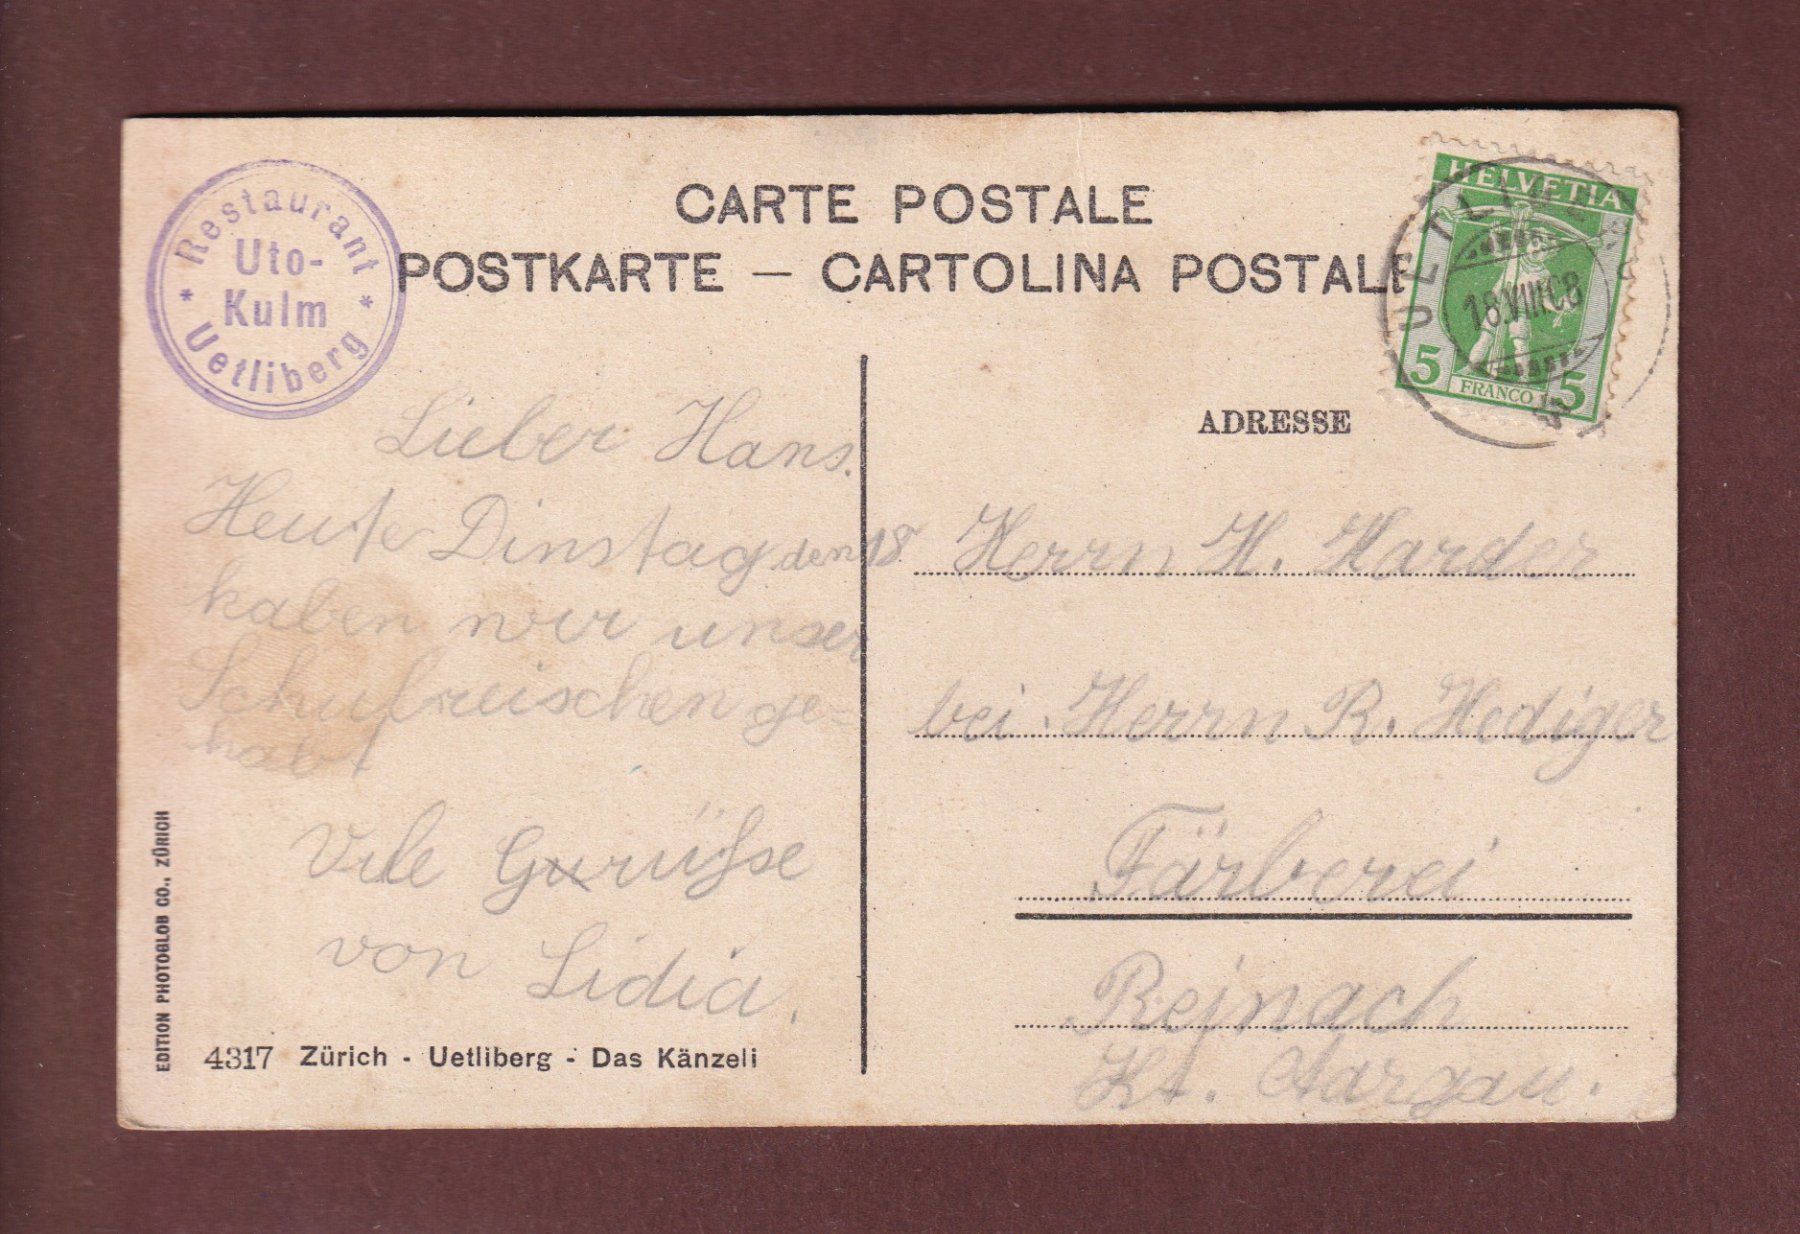 CARTE POSTALE
POSTKARTE — CARTOLINA POSTALE
Restaurant
Uto-
Kulm
* Uetliberg *
HELVETIA
UETLIBERG
18.VIII.08
5 FRANCO 5
ADRESSE
Lieber Hans.
Heute Dinstag den 18
haben wir unser
Schulreischen ge=
habt
Vile Grüsse
von Lidia.
Herrn H. Harder
bei Herrn R. Hediger
Färberei
Rejnach
Kt. Aargau.
EDITION PHOTOGLOB CO., ZÜRICH
4317 Zürich - Uetliberg - Das Känzeli